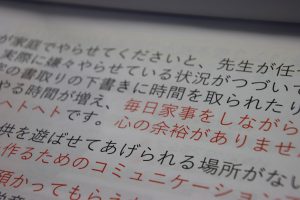 が家庭でやらせてくださいと、先生が任
実際に嫌々やらせている状況がつづいて
の書取りの下書きに時間を取られたり
やる時間が増え、毎日家事をしながら
ヘトヘトです。心の余裕がありませ
供を遊ばせてあげられる場所がない
作るためのコミュニケーション
預かってもらえ